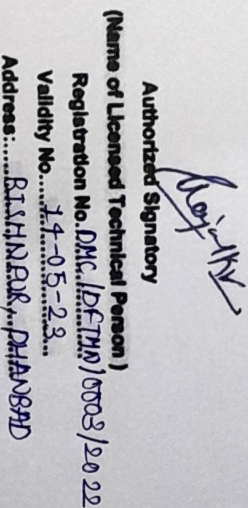 Authorized Signatory
(Name of Licensed Technical Person)
Registration No. DMC/DFTMN/0003/2022
Validity No. 14-05-23
Address: BISHNPUR, DHANBAD